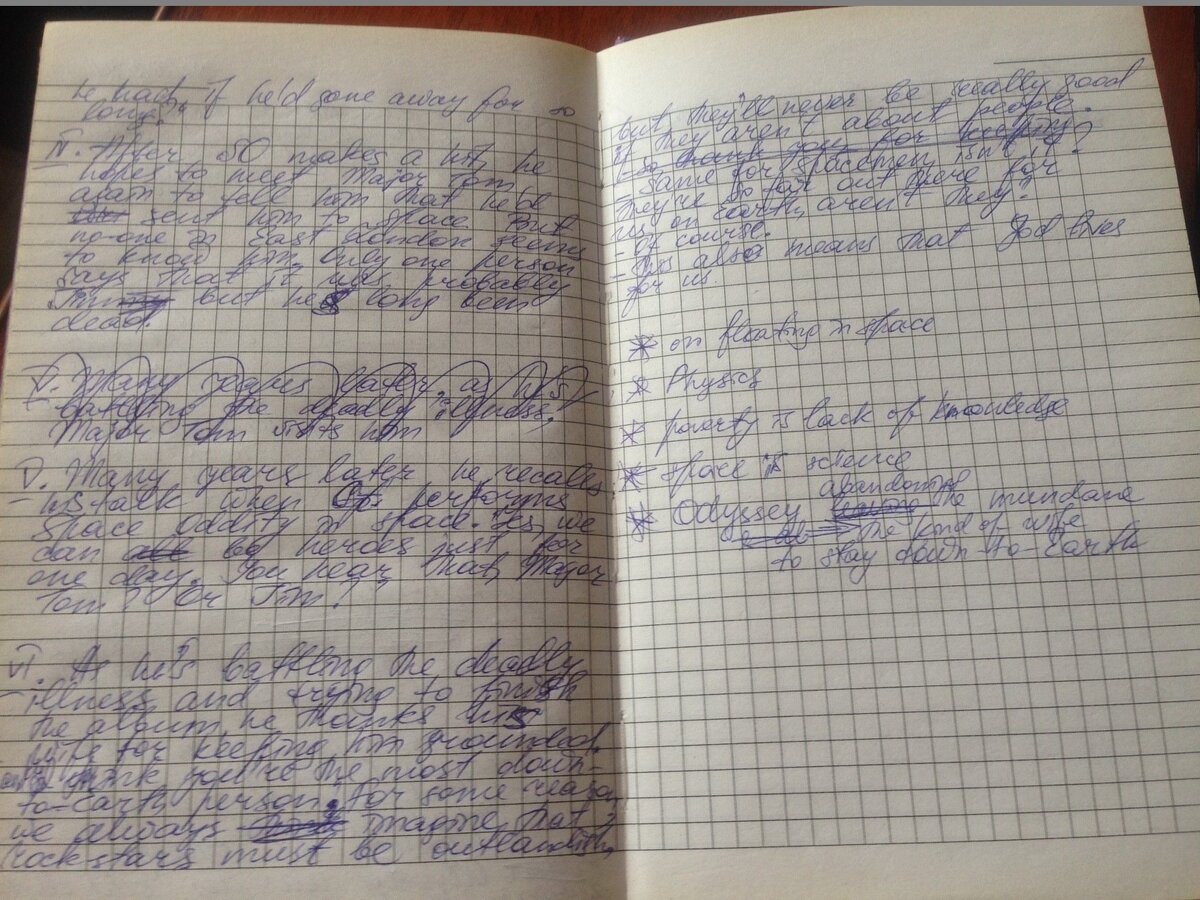 he had if he'd gone away for so
long?"
IV. After SO makes a hit, he
hopes to meet Major Tom
again to tell him that he'd
sent him to space. But
no-one in East London seems
to know him, only one person
says that it was probably
Jim but he's long been
dead.
V. Many years later, as he's
battling the deadly illness,
Major Tom visits him
V. Many years later he recalls
his talk when performs
Space Oddity in space. Yes, we
can be heroes just for
one day. You hear that, Major
Tom? Or Jim?
VI. As he's battling the deadly
illness and trying to finish
the album he thanks his
wife for keeping him grounded.
think you're the most down-
to-earth person. for some reason
we always imagine that
rockstars must be outlandish,
but they'll never be really good
if they aren't about people.
- So thank you for keeping
- Same for spacemen, isn't it?
They're so far out there for
us on earth, aren't they?
- Of course.
- This also means that God lives
for us.
* on floating in space
* Physics
* poverty is lack of knowledge
* space is science
abandoned
* Odyssey leaving the mundane
the kind of wife
to stay down-to-Earth